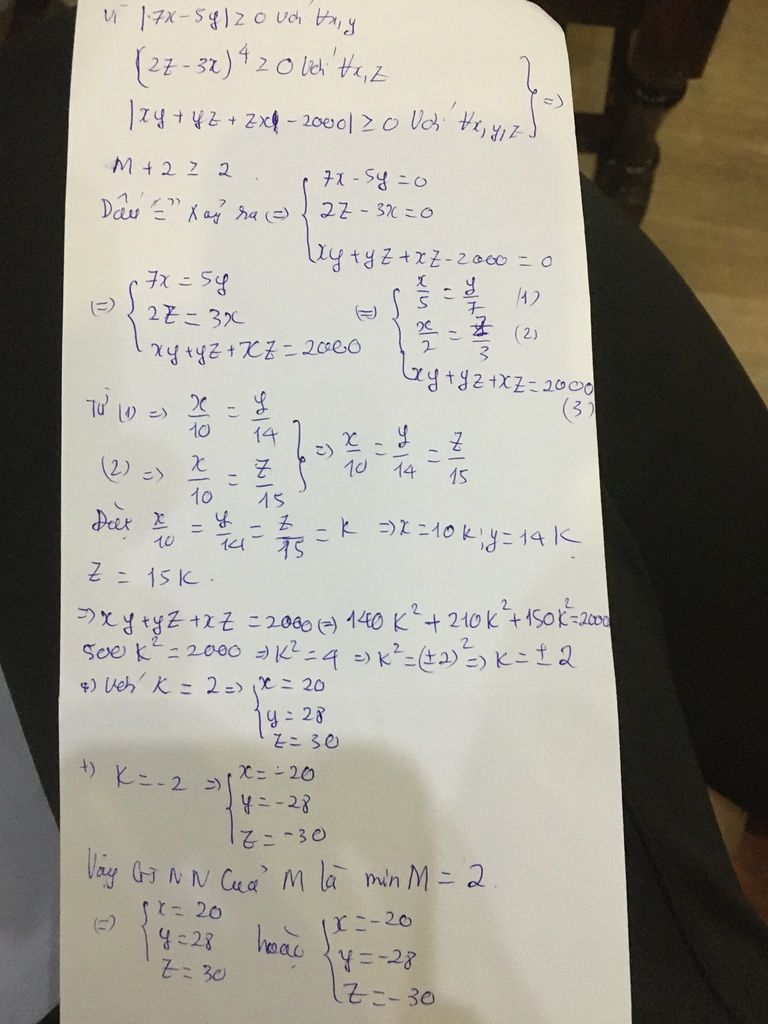 Vì |7x - 5y| ≥ 0 với ∀x,y
(2z - 3x)⁴ ≥ 0 với ∀x,z
|xy + yz + zx - 2000| ≥ 0 với ∀x,y,z } =>
M + 2 ≥ 2
Dấu "=" xảy ra (=) { 7x - 5y = 0
2z - 3x = 0
xy + yz + xz - 2000 = 0
(=) { 7x = 5y
2z = 3x
xy + yz + xz = 2000
(=) { x/5 = y/7 (1)
x/2 = z/3 (2)
xy + yz + xz = 2000
(3)
Từ (1) => x/10 = y/14
(2) => x/10 = z/15 } => x/10 = y/14 = z/15
Đặt x/10 = y/14 = z/15 = K => x = 10K; y = 14K
z = 15K.
=> xy + yz + xz = 2000 (=) 140K² + 210K² + 150K² = 2000
500K² = 2000 => K² = 4 => K² = (±2)² => K = ±2
+) Với K = 2 => { x = 20
y = 28
z = 30
+) K = -2 => { x = -20
y = -28
z = -30
Vậy GTNN của M là min M = 2.
(=) { x = 20
y = 28
z = 30
hoặc { x = -20
y = -28
z = -30